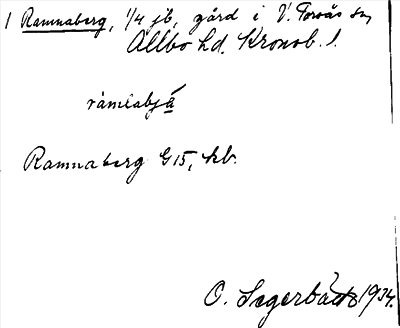 1 Ramnaberg, 1/4 jb, gård i V. Torsås sn,
Allbo hd. Kronob. l.
råmlabjä
Ramnaberg G15, kb.
O. Segerbäck 1934.